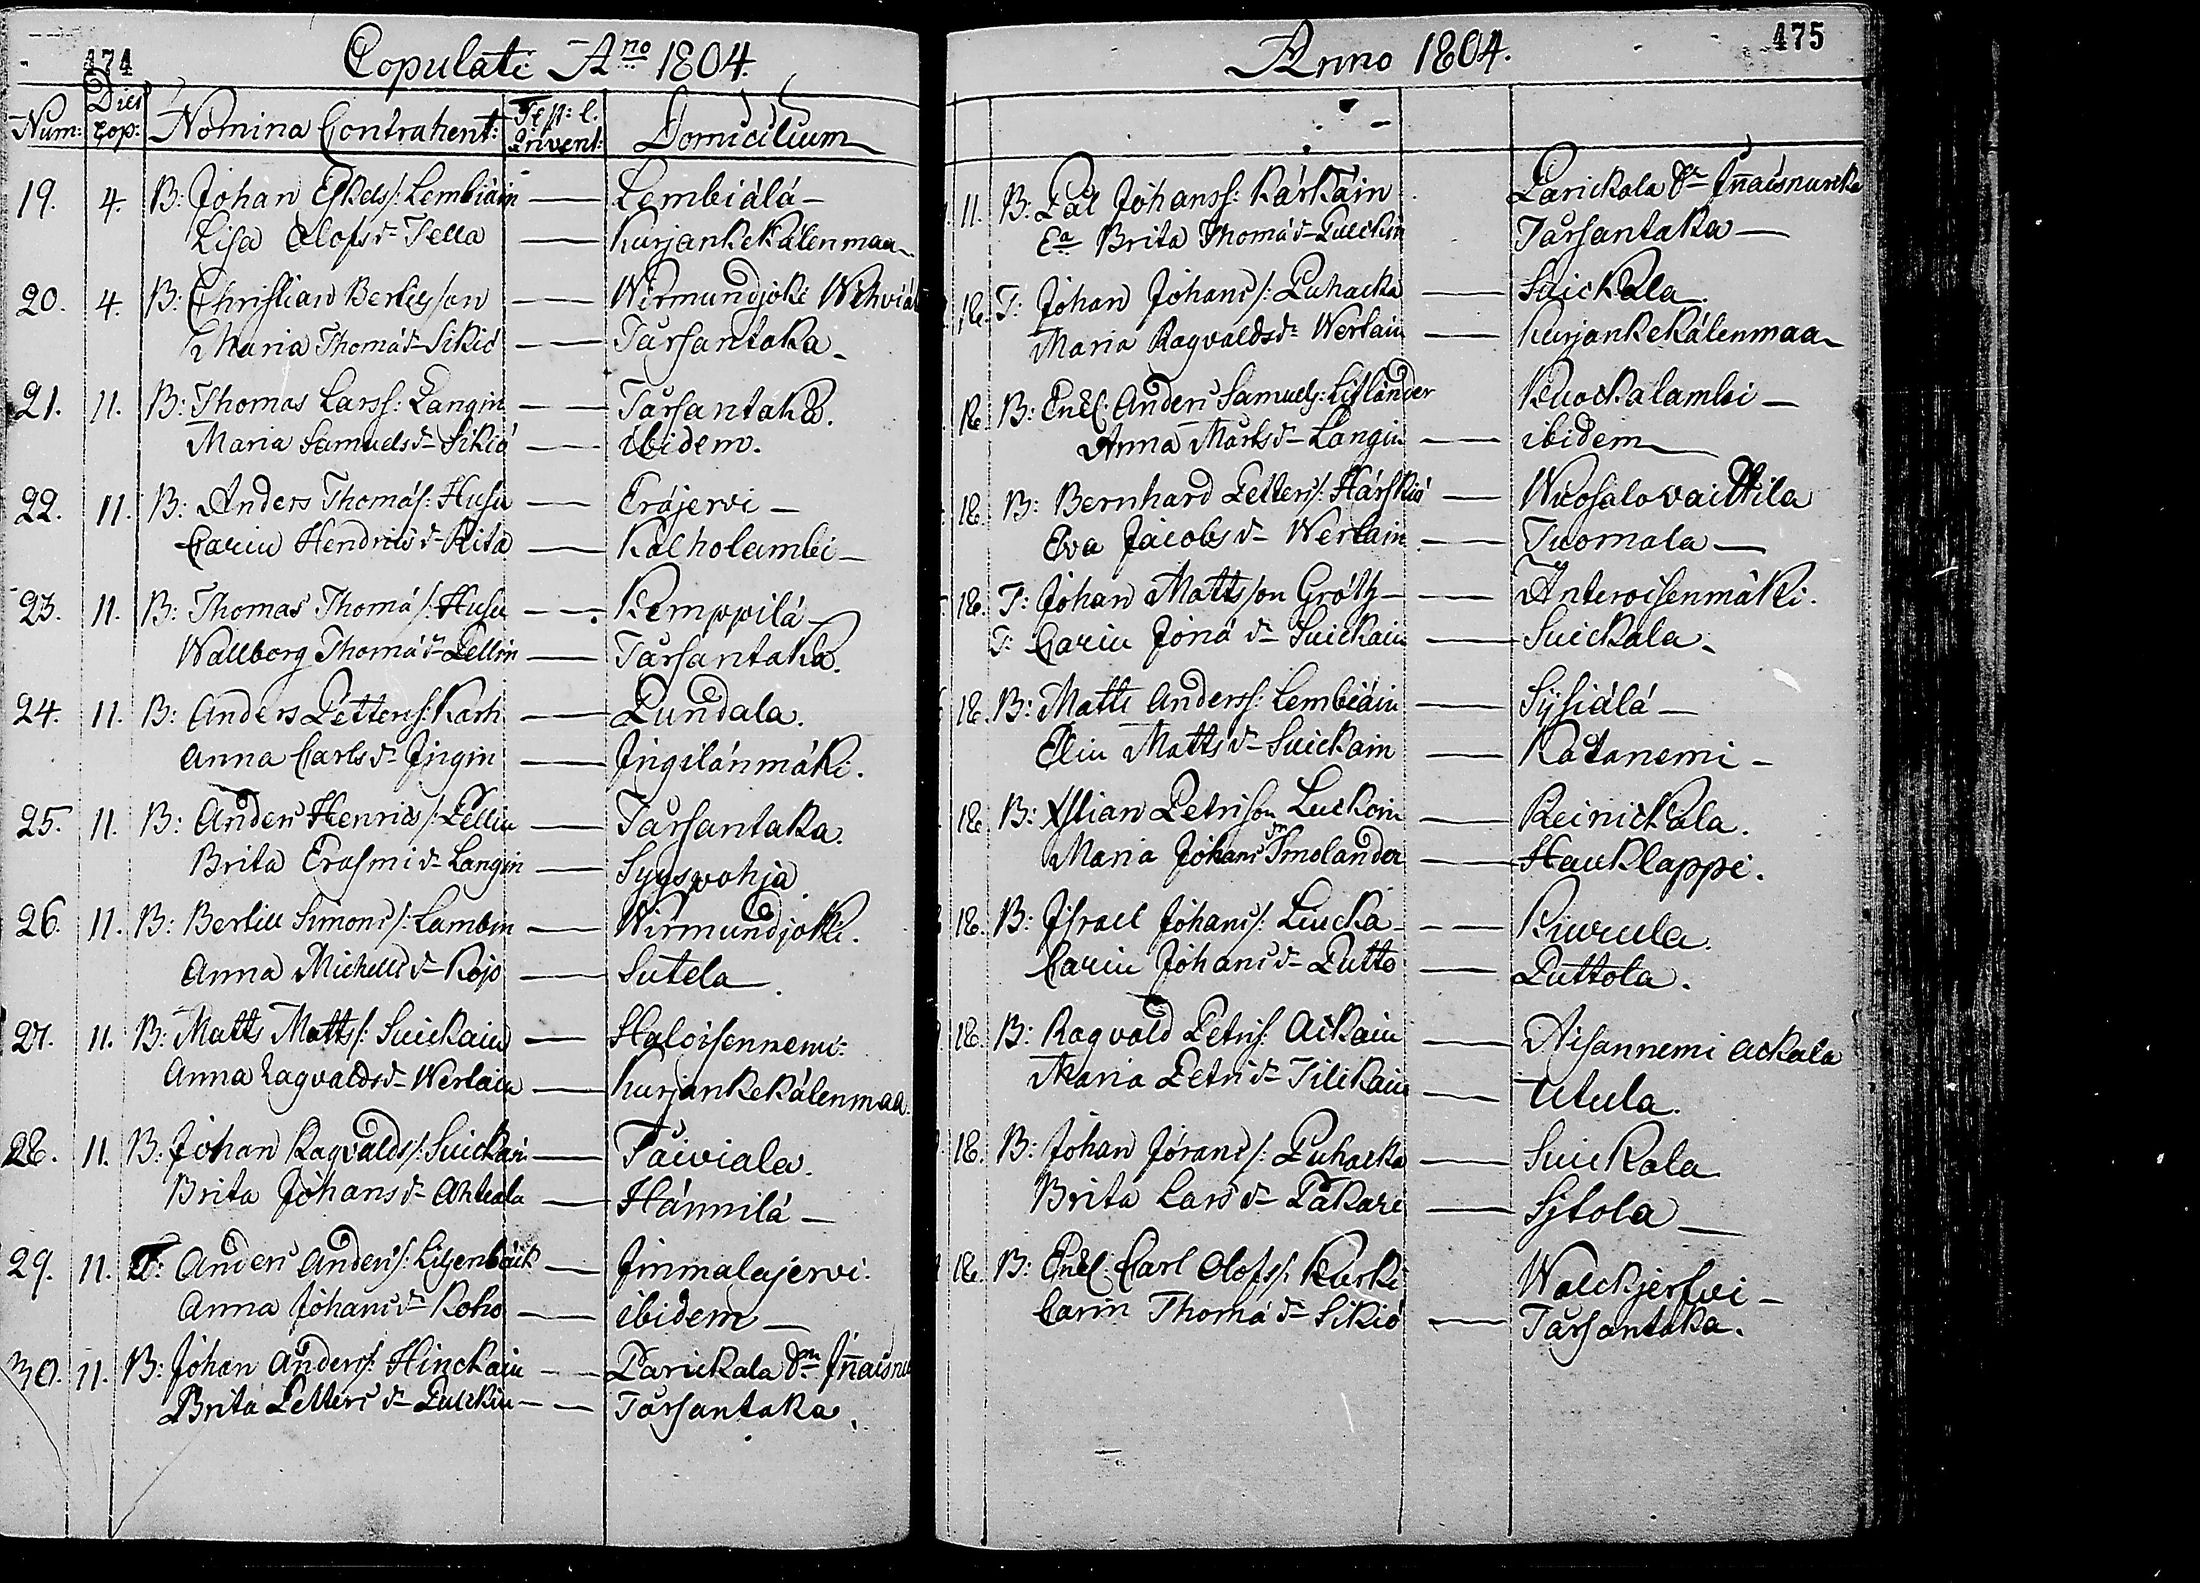 474
Copulati Ano 1804.
Num: Dies Cop: Nomina Contrahent: Invent: Domicilium
19. 4. B: Johan Eskels/: Lembiäin — Lembiälä —
Lisa Olofs dr Tella — Kurjankekälenmaa
20. 4. B: Christian Bertilsson — — Wirmundjoki
Maria Thomä dr Sikiö — — Tarsantaka
21. 11. B: Thomas Larss: Langin — — Tarsantaka.
Maria Samuels dr Sikiö — — ibidem.
22. 11. B: Anders Thomäs: Husu — Eräjervi —
Carin Hendrics dr Rita — Kalholambi —
23. 11. B: Thomas Thomä/: Husu — — Kemppilä —
Wallborg Thomä dr Pellin — Tarsantaka.
24. 11. B: Anders Petters/: Karh — Pundala.
Anna Carls dr Jngin — Jngilänmäki.
25. 11. B: Anders Henrics/: Pellin — Tarsantaka.
Brita Erasmi dr Langin — Syyspohja
26. 11. B: Bertill Simons/: Lambin — Wirmundjoki.
Anna Michells dr Kojo — Sutela
27. 11. B: Matts Matts/: Suickain — Haloisennemi:
Anna Ragvalds dr Werlain — Kurjankekälenmaa.
28. 11. B: Johan Ragvalds/: Suickain — Taiviala.
Brita Johans dr — Hännilä —
29. 11. Anders Anders/: — Jmmalajervi.
Anna Johans dr Koho — ibidem —
30. 11. B: Johan Anderss: Hinckain — — Parickala
Brita Petters dr Pulckin — — Tarsantaka.
475
Anno 1804.
11. B: Pål Johanss: Kärkäin Parickala
Brita Thomä dr Pulckin Tarsantaka —
18. T: Johan Johans/: Puhacka — Suickala.
Maria Ragvalds dr Werlain — Kurjankekälenmaa
18. B: Enkl: Anders Samuels: Lifländer Kuockalambi —
Anna Mårts dr Langin — ibidem
18. B: Bernhard Petters/: Härskiä — Wuosalo
Eva Jacobs dr Werlain — Tuomala —
18. T: Johan Mattsson Gröth — — Anteroisenmäki.
T: Carin Jönä dr Suickain — Suickala.
18. B: Matts Anderss: Lembiäin — Sysiälä —
Elin Matts dr Suickain — Ratanemi —
18. B: Xstian Petrison Luckoin — Reinickala.
Maria Johans dr Smolander — Hauklappi.
18. B: Jsrael Johans/: Liucka — — Kiurula.
Carin Johans dr Putto — Puttola.
18. B: Ragvald Petris: Aikain — Aisannemi Ackala
Maria Petri dr Tilikain — Utula.
18. B: Johan Jörans/: Puhacka — Suickala
Brita Lars dr Pakari — Sjtola —
18. B: Enkl: Carl Olofs/: Kurki Walckjerfvi —
Carin Thomä dr Sikiö — Tarsantaka.